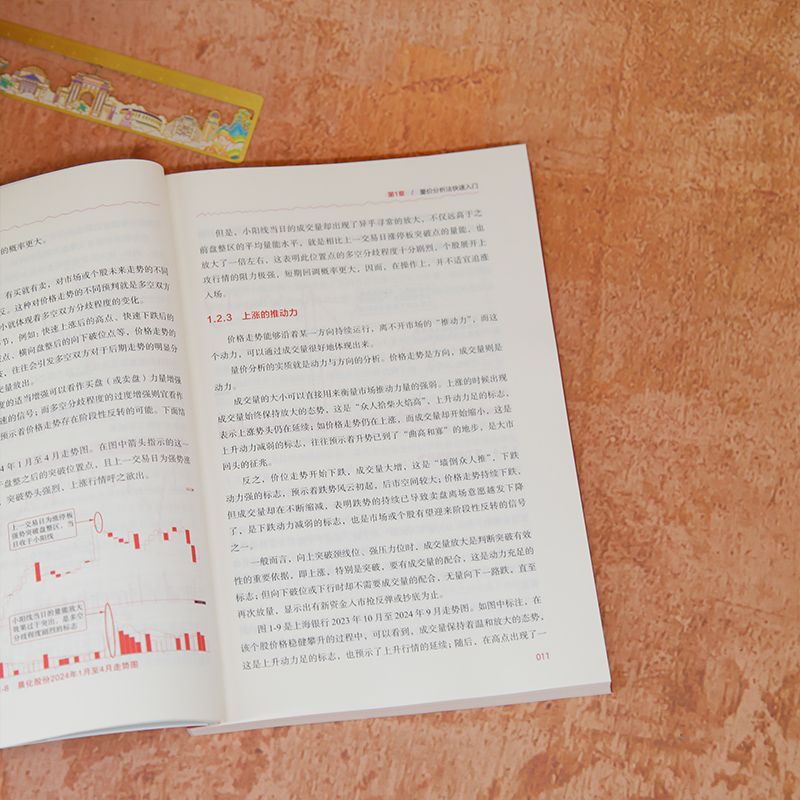 的概率更大。
有买就有卖，对市场或个股未来走势的不同
反。这种对价格走势的不同预判就是多空双方
小就体现着多空双方分歧程度的变化。
节，例如：快速上涨后的高点、快速下跌后的
点、横向盘整后的向下破位点等，价格走势的
往往会引发多空双方对于后期走势的明显分
交量放出。
度的适当增强可以看作买盘（或卖盘）力量增强
速的信号；而多空分歧程度的过度增强则宜看作
预示着价格走势存在阶段性反转的可能。下面结
4年1月至4月走势图。在图中箭头指示的这一
盘整之后的突破位置点，且上一交易日为强势涨
突破势头强烈、上涨行情呼之欲出。
上一交易日为涨停板
强势突破盘整区，当
日收于小阳线
小阳线当日的量能放大
效果过于突出，是多空
分歧程度剧烈的标志
-8 晨化股份2024年1月至4月走势图
第1章 / 量价分析法快速入门
但是，小阳线当日的成交量却出现了异乎寻常的放大，不仅远高于之
前盘整区的平均量能水平，就是相比上一交易日涨停板突破点的量能，也
放大了一倍左右，这表明此位置点的多空分歧程度十分剧烈，个股展开上
攻行情的阻力极强，短期回调概率更大，因而，在操作上，并不适宜追涨
入场。
1.2.3 上涨的推动力
价格走势能够沿着某一方向持续运行，离不开市场的“推动力”，而这
个动力，可以通过成交量很好地体现出来。
量价分析的实质就是动力与方向的分析。价格走势是方向，成交量则是
动力。
成交量的大小可以直接用来衡量市场推动力量的强弱。上涨的时候出现
成交量始终保持放大的态势，这是“众人拾柴火焰高”，上升动力足的标志，
表示上涨势头仍在延续；如价格走势仍在上涨，而成交量却开始缩小，这是
上升动力减弱的标志，往往预示着升势已到了“曲高和寡”的地步，是大市
回头的征兆。
反之，价位走势开始下跌，成交量大增，这是“墙倒众人推”，下跌
动力强的标志，预示着跌势风云初起，后市空间较大；价格走势持续下跌，
但成交量却在不断缩减，表明跌势的持续已导致卖盘离场意愿越发下降
了，是下跌动力减弱的标志，也是市场或个股有望迎来阶段性反转的信号
之一。
一般而言，向上突破颈线位、强压力位时，成交量放大是判断突破有效
性的重要依据，即上涨，特别是突破，要有成交量的配合，这是动力充足的
标志；但向下破位或下行时却不需要成交量的配合，无量向下一路跌，直至
再次放量，显示出有新资金入市抢反弹或抄底为止。
图1-9是上海银行2023年10月至2024年9月走势图。如图中标注，在
该个股价格稳健攀升的过程中，可以看到，成交量保持着温和放大的态势，
这是上升动力足的标志，也预示了上升行情的延续；随后，在高点出现了一
011